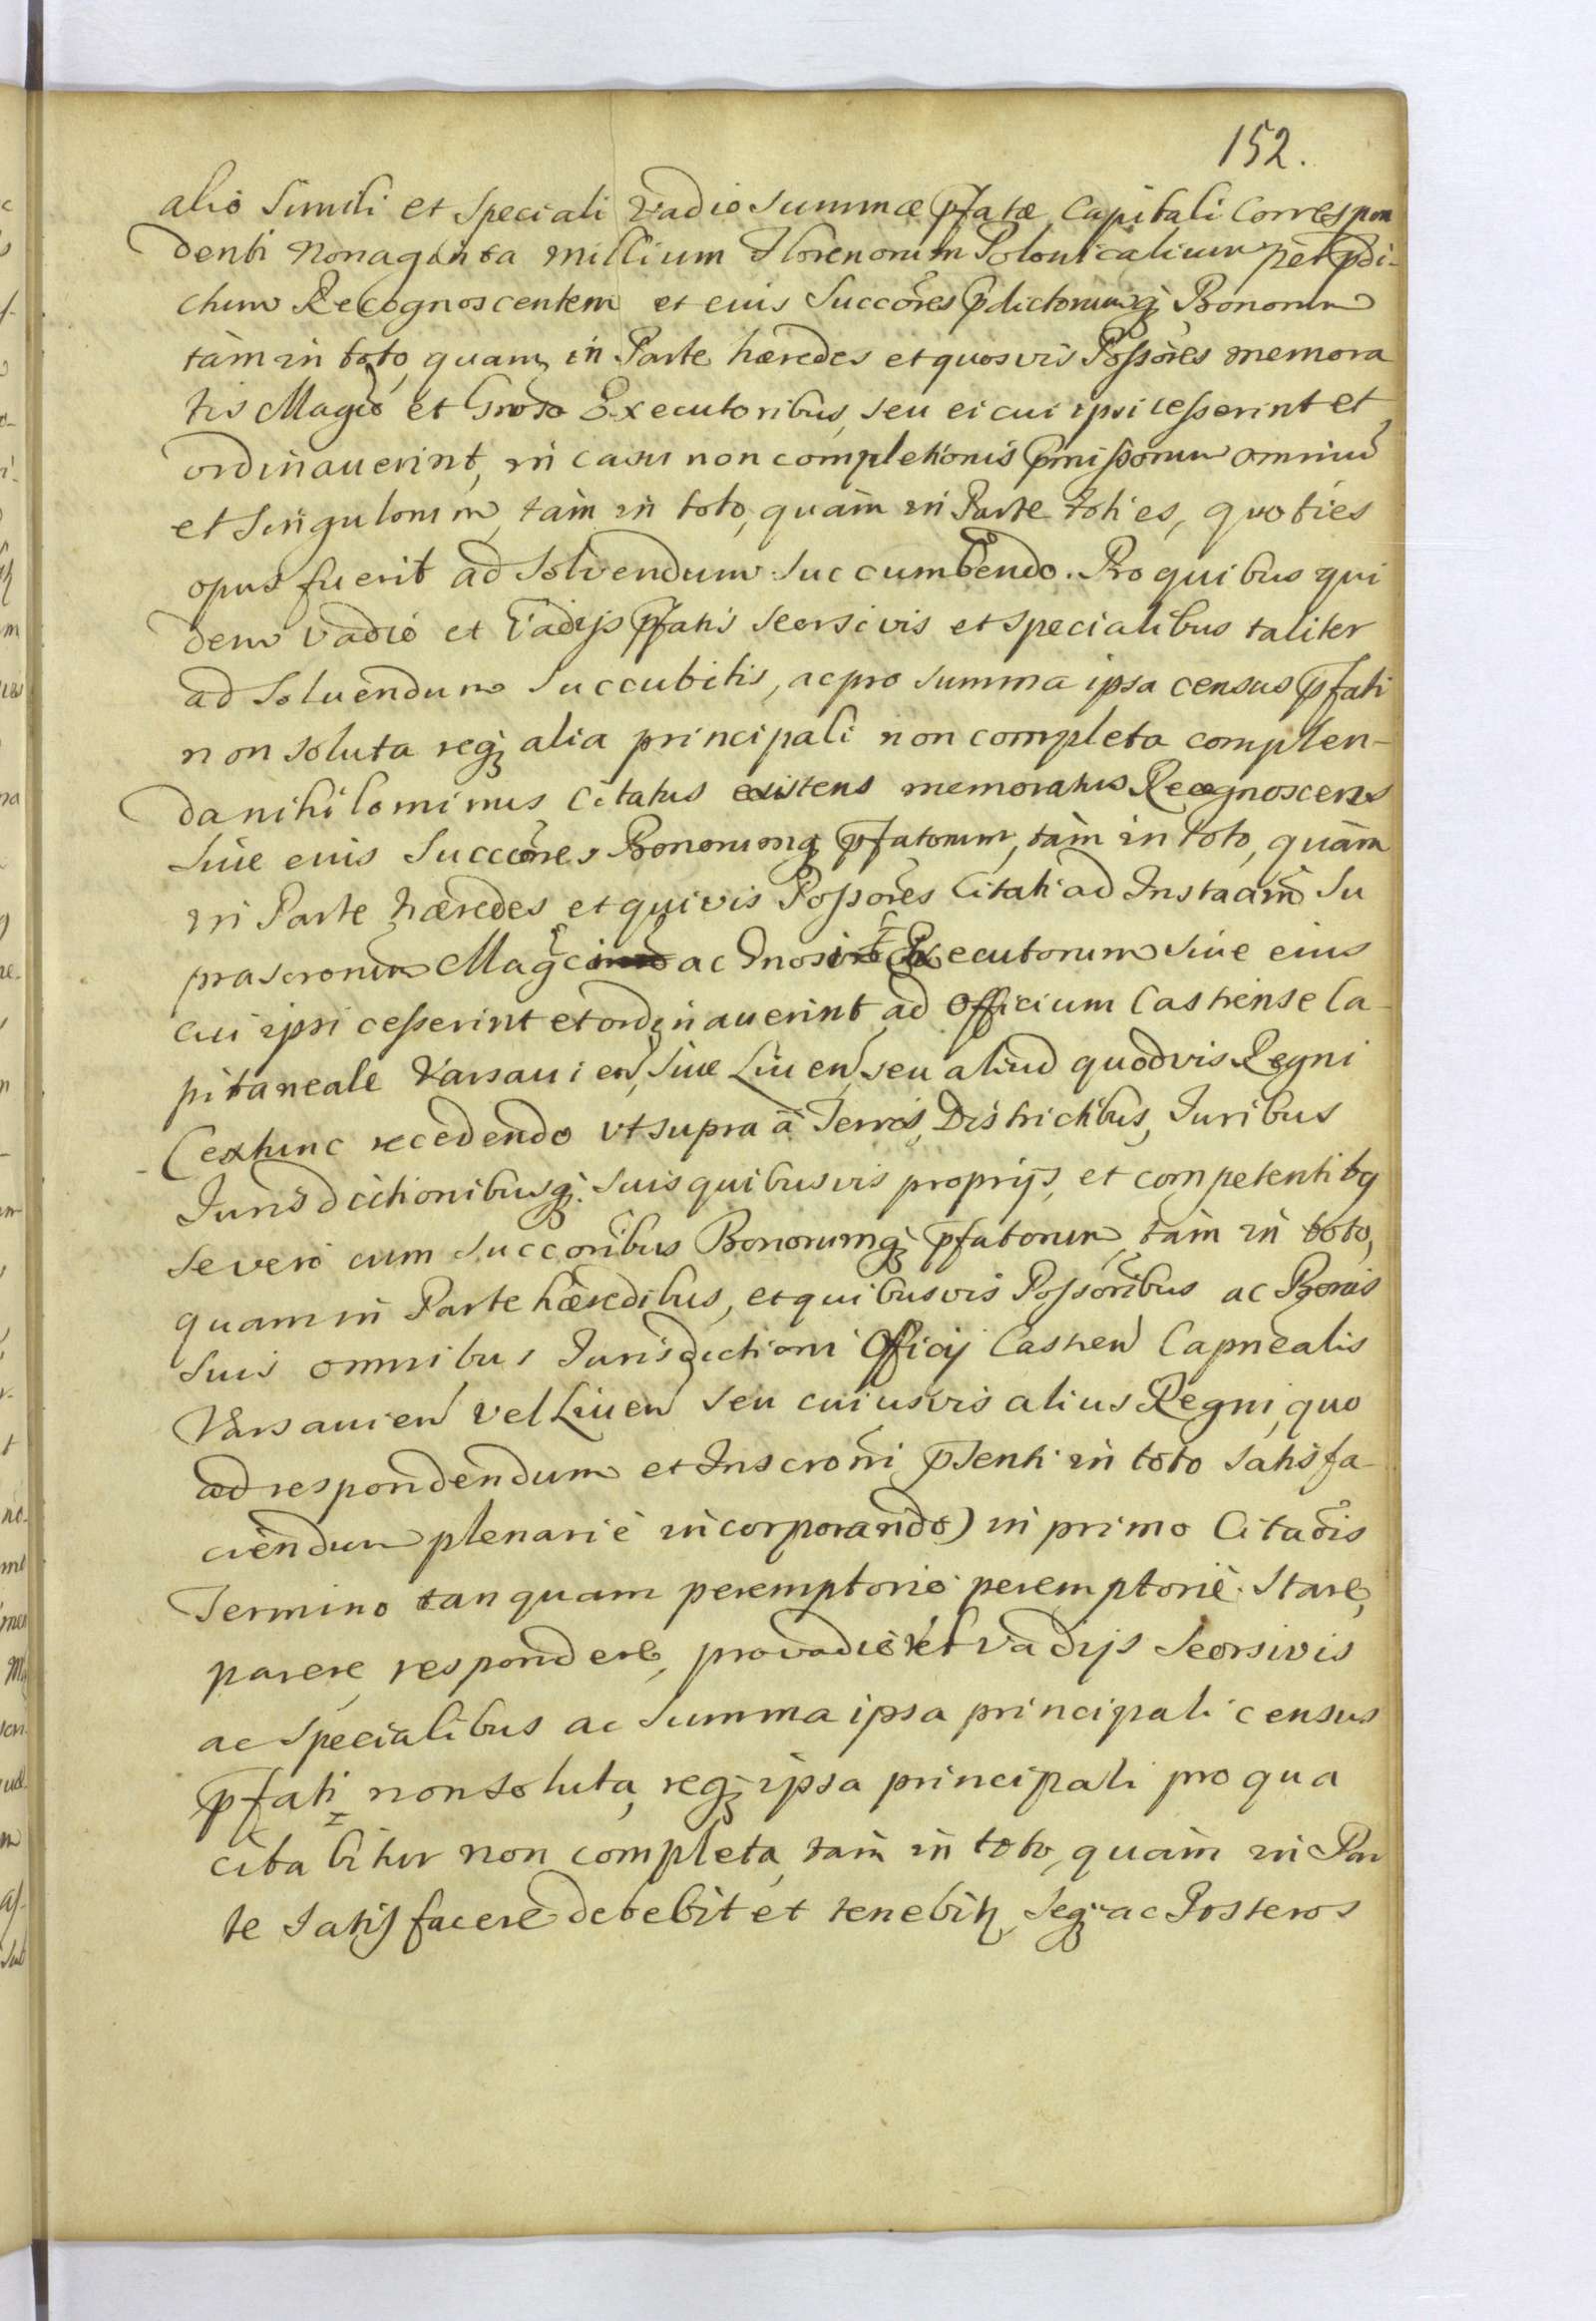 152.
alio simili et speciali vadio summæ pfatæ Capitali Correspon
denti Nonaginta millium Florenorum Polonicalium per pdi-
ctum Recognoscentem et eius Succores pdictorumq Bonorum
tàm in toto, quam in Parte hæredes et quosvis Possores memora
tis Magcis et Gnosis Executoribus, seu ei cui ipsi cesserint et
ordinauerint, in casu non completionis pmissorum omniu
et singulorum, tàm in toto, quàm in Parte toties, quoties
opus fuerit ad solvendum succumbendo. Pro quibus qui
dem vadio et Vadijs pfatis seorsivis et specialibus taliter
ad soluendum succubitis, ac pro summa ipsa census pfati
non soluta req alia principali non completa complen-
da nihilominus Citatus existens memoratus Recognoscens
siue eius Succores Bonorumq pfatorum, tàm in toto, quàm
in Parte hæredes et quivis Possores Citati ad Instaam Su
prascrorum Magcorum ac Gnosorum Executorum siue eius
cui ipsi cesserint et ordinauerint, ad Officium Castrense Ca-
pitaneale Varsauien, siue Liuen, seu aliud quodvis Regni
(exhinc recedendo vt supra à Terris, Districtibus, Iuribus
Iurisdictionibusq suis quibusvis proprijs, et competentibq
se vero cum Succoribus Bonorumq pfatorum tàm in toto,
quam in Parte hæredibus, et quibusvis Possoribus ac Bonis
suis omnibus Iurisdictioni Officij Castren Capnealis
Varsauien vel Liuen seu cuiusvis alius Regni, quo
ad respondendum et Inscroni psenti in toto satisfa-
ciendum plenariè incorporando) in primo Citaois
Termino tanquam peremptorio peremptoriè stare,
parere, respondere, pro vadio et vadijs seorsivis
ac specialibus ac summa ipsa principali census
pfati non soluta, req ipsa principali pro qua
citabitur non completa, tàm in toto, quàm in Par
te satisfacere debebit et tenebitr, seq ac Posteros